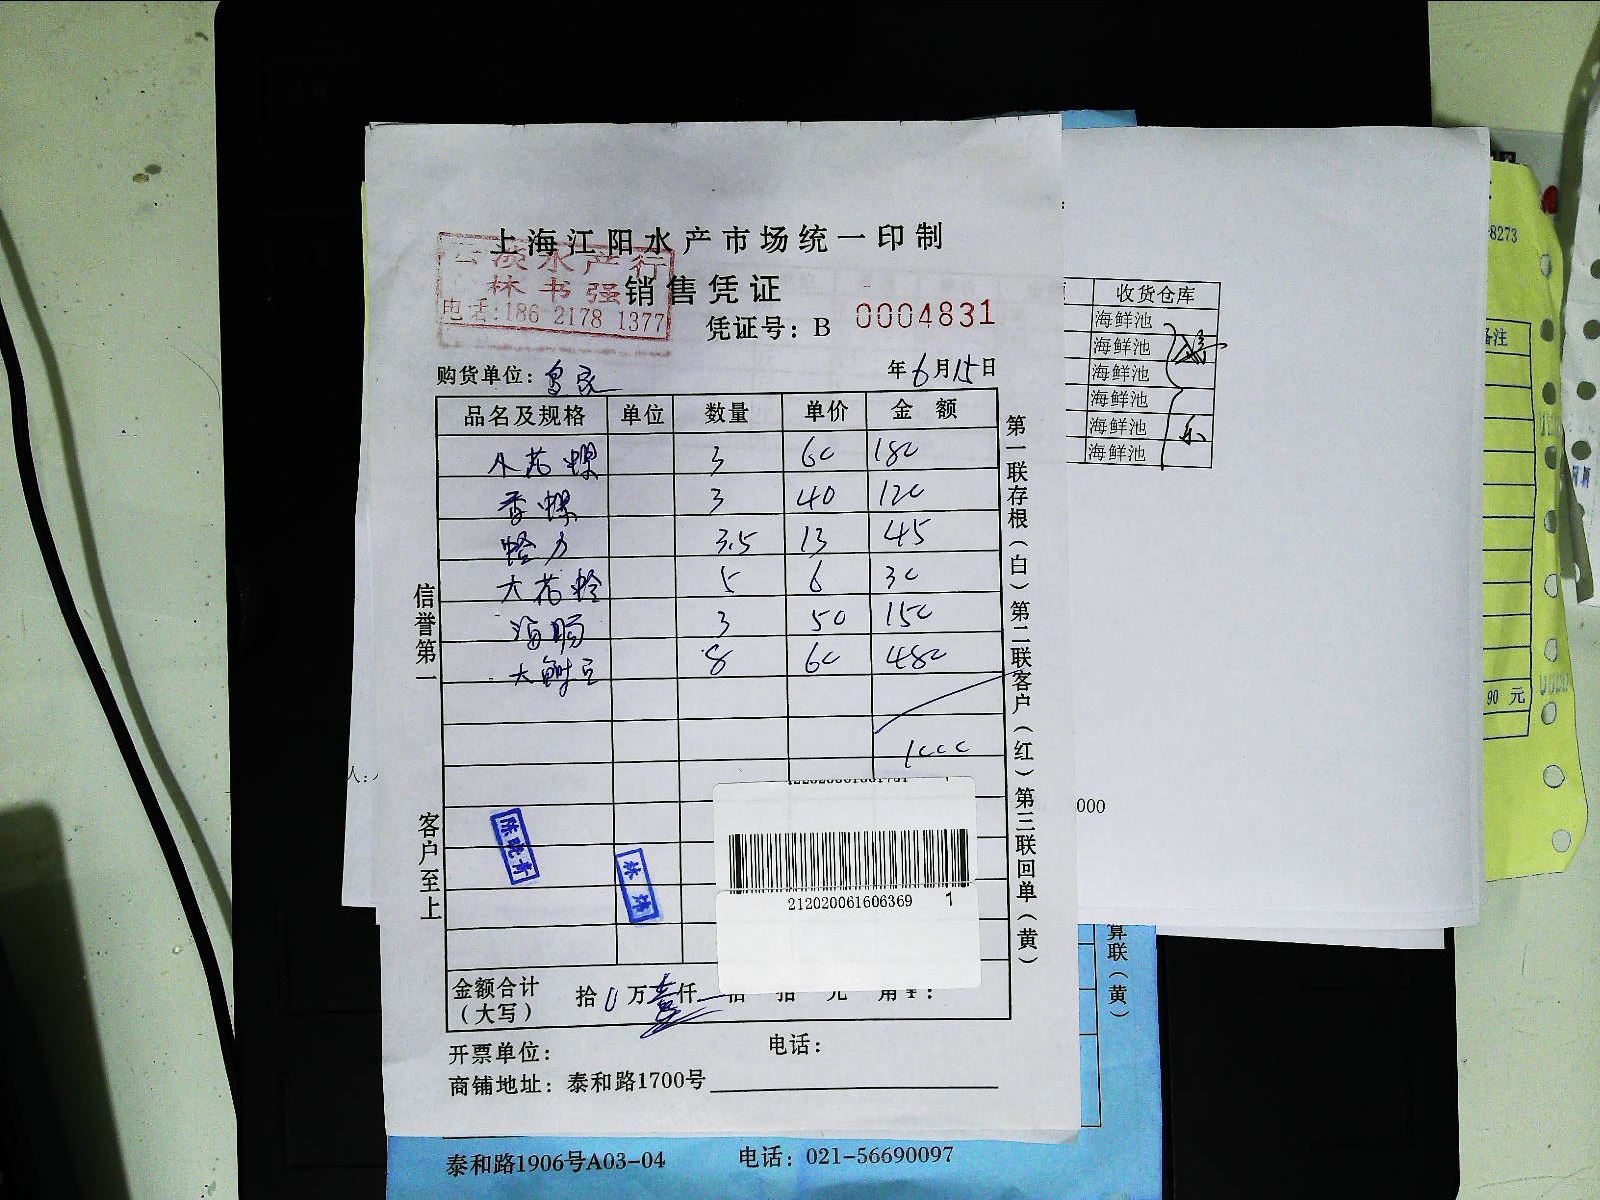 上海江阳水产市场统一印制
淡水产行
林书强
电话:186 2178 1377
销售凭证
凭证号：B 0004831
购货单位：
年6月15日
品名及规格 单位 数量 单价 金额
小花螺 3 60 180
香螺 3 40 120
蛤力 3.5 13 45
大花蛤 5 6 30
海肠 3 50 150
大鲜豆 8 60 480
1000
信誉第一
客户至上
第一联存根（白）第二联客户（红）第三联回单（黄）
陈晓青
林
212020061606369 1
金额合计（大写） 拾0万壹仟 佰 拾 元 角 ¥：
开票单位：
电话：
商铺地址：泰和路1700号
泰和路1906号A03-04 电话：021-56690097
收货仓库
海鲜池
海鲜池
海鲜池
海鲜池
海鲜池
海鲜池
人：
000
-8273
备注
90 元
算联（黄）